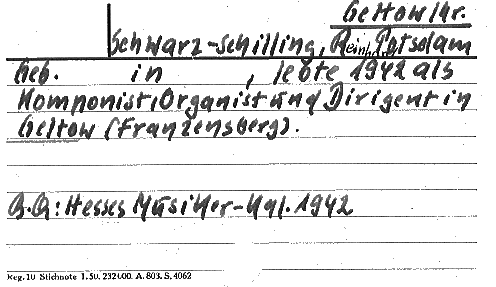 Geltow Kr.
Schwarz-Schilling, Reinhard Potsdam
Geb. in , lebte 1942 als
Komponist, Organist und Dirigent in
Geltow (Franzensberg).
B.Q.: Hesses Musiker-Kal. 1942
Reg. 10 Stichnote 1.50. 232t.00. A. 803. S. 4062